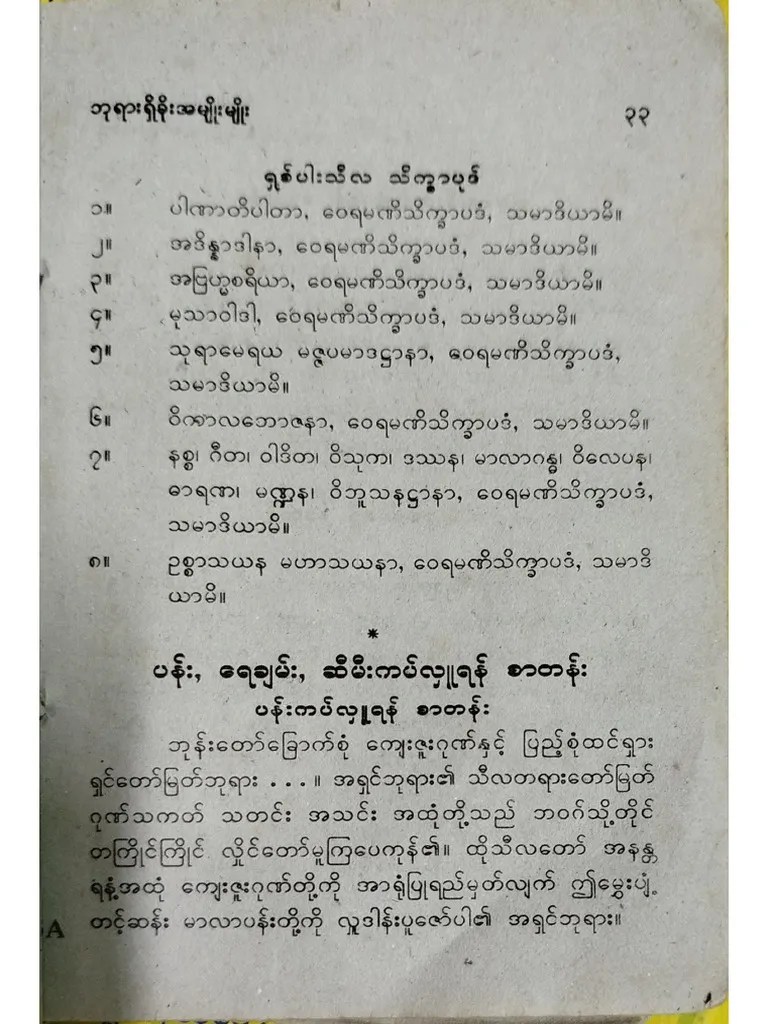 ဘုရားရှိခိုးအမျိုးမျိုး ၃၃
ရှစ်ပါးသီလ သိက္ခာပုဒ်
၁။ ပါဏာတိပါတာ, ဝေရမဏိသိက္ခာပဒံ, သမာဒိယာမိ။
၂။ အဒိန္နာဒါနာ, ဝေရမဏိသိက္ခာပဒံ, သမာဒိယာမိ။
၃။ အဗြဟ္မစရိယာ, ဝေရမဏိသိက္ခာပဒံ, သမာဒိယာမိ။
၄။ မုသာဝါဒါ, ဝေရမဏိသိက္ခာပဒံ, သမာဒိယာမိ။
၅။ သုရာမေရယ မဇ္ဇပမာဒဋ္ဌာနာ, ဝေရမဏိသိက္ခာပဒံ,
သမာဒိယာမိ။
၆။ ဝိကာလဘောဇနာ, ဝေရမဏိသိက္ခာပဒံ, သမာဒိယာမိ။
၇။ နစ္စ၊ ဂီတ၊ ဝါဒိတ၊ ဝိသုက၊ ဒဿန၊ မာလာဂန္ဓ၊ ဝိလေပန၊
ဓာရဏ၊ မဏ္ဍန၊ ဝိဘူသနဋ္ဌာနာ, ဝေရမဏိသိက္ခာပဒံ,
သမာဒိယာမိ။
၈။ ဥစ္စာသယန မဟာသယနာ, ဝေရမဏိသိက္ခာပဒံ, သမာဒိ
ယာမိ။
*
ပန်း, ရေချမ်း, ဆီမီးကပ်လှူရန် စာတန်း
ပန်းကပ်လှူရန် စာတန်း
ဘုန်းတော်ခြောက်စုံ ကျေးဇူးဂုဏ်နှင့် ပြည့်စုံထင်ရှား
ရှင်တော်မြတ်ဘုရား . . . ။ အရှင်ဘုရား၏ သီလတရားတော်မြတ်
ဂုဏ်သကတ် သတင်း အသင်း အထုံတို့သည် ဘဝဂ်သို့တိုင်
တကြိုင်ကြိုင် လှိုင်တော်မူကြပေကုန်၏။ ထိုသီလတော် အနန္တ
ရနံ့အထုံ ကျေးဇူးဂုဏ်တို့ကို အာရုံပြုရည်မှတ်လျက် ဤမွှေးပျံ့
တင့်ဆန်း မာလာပန်းတို့ကို လှူဒါန်းပူဇော်ပါ၏ အရှင်ဘုရား။
A